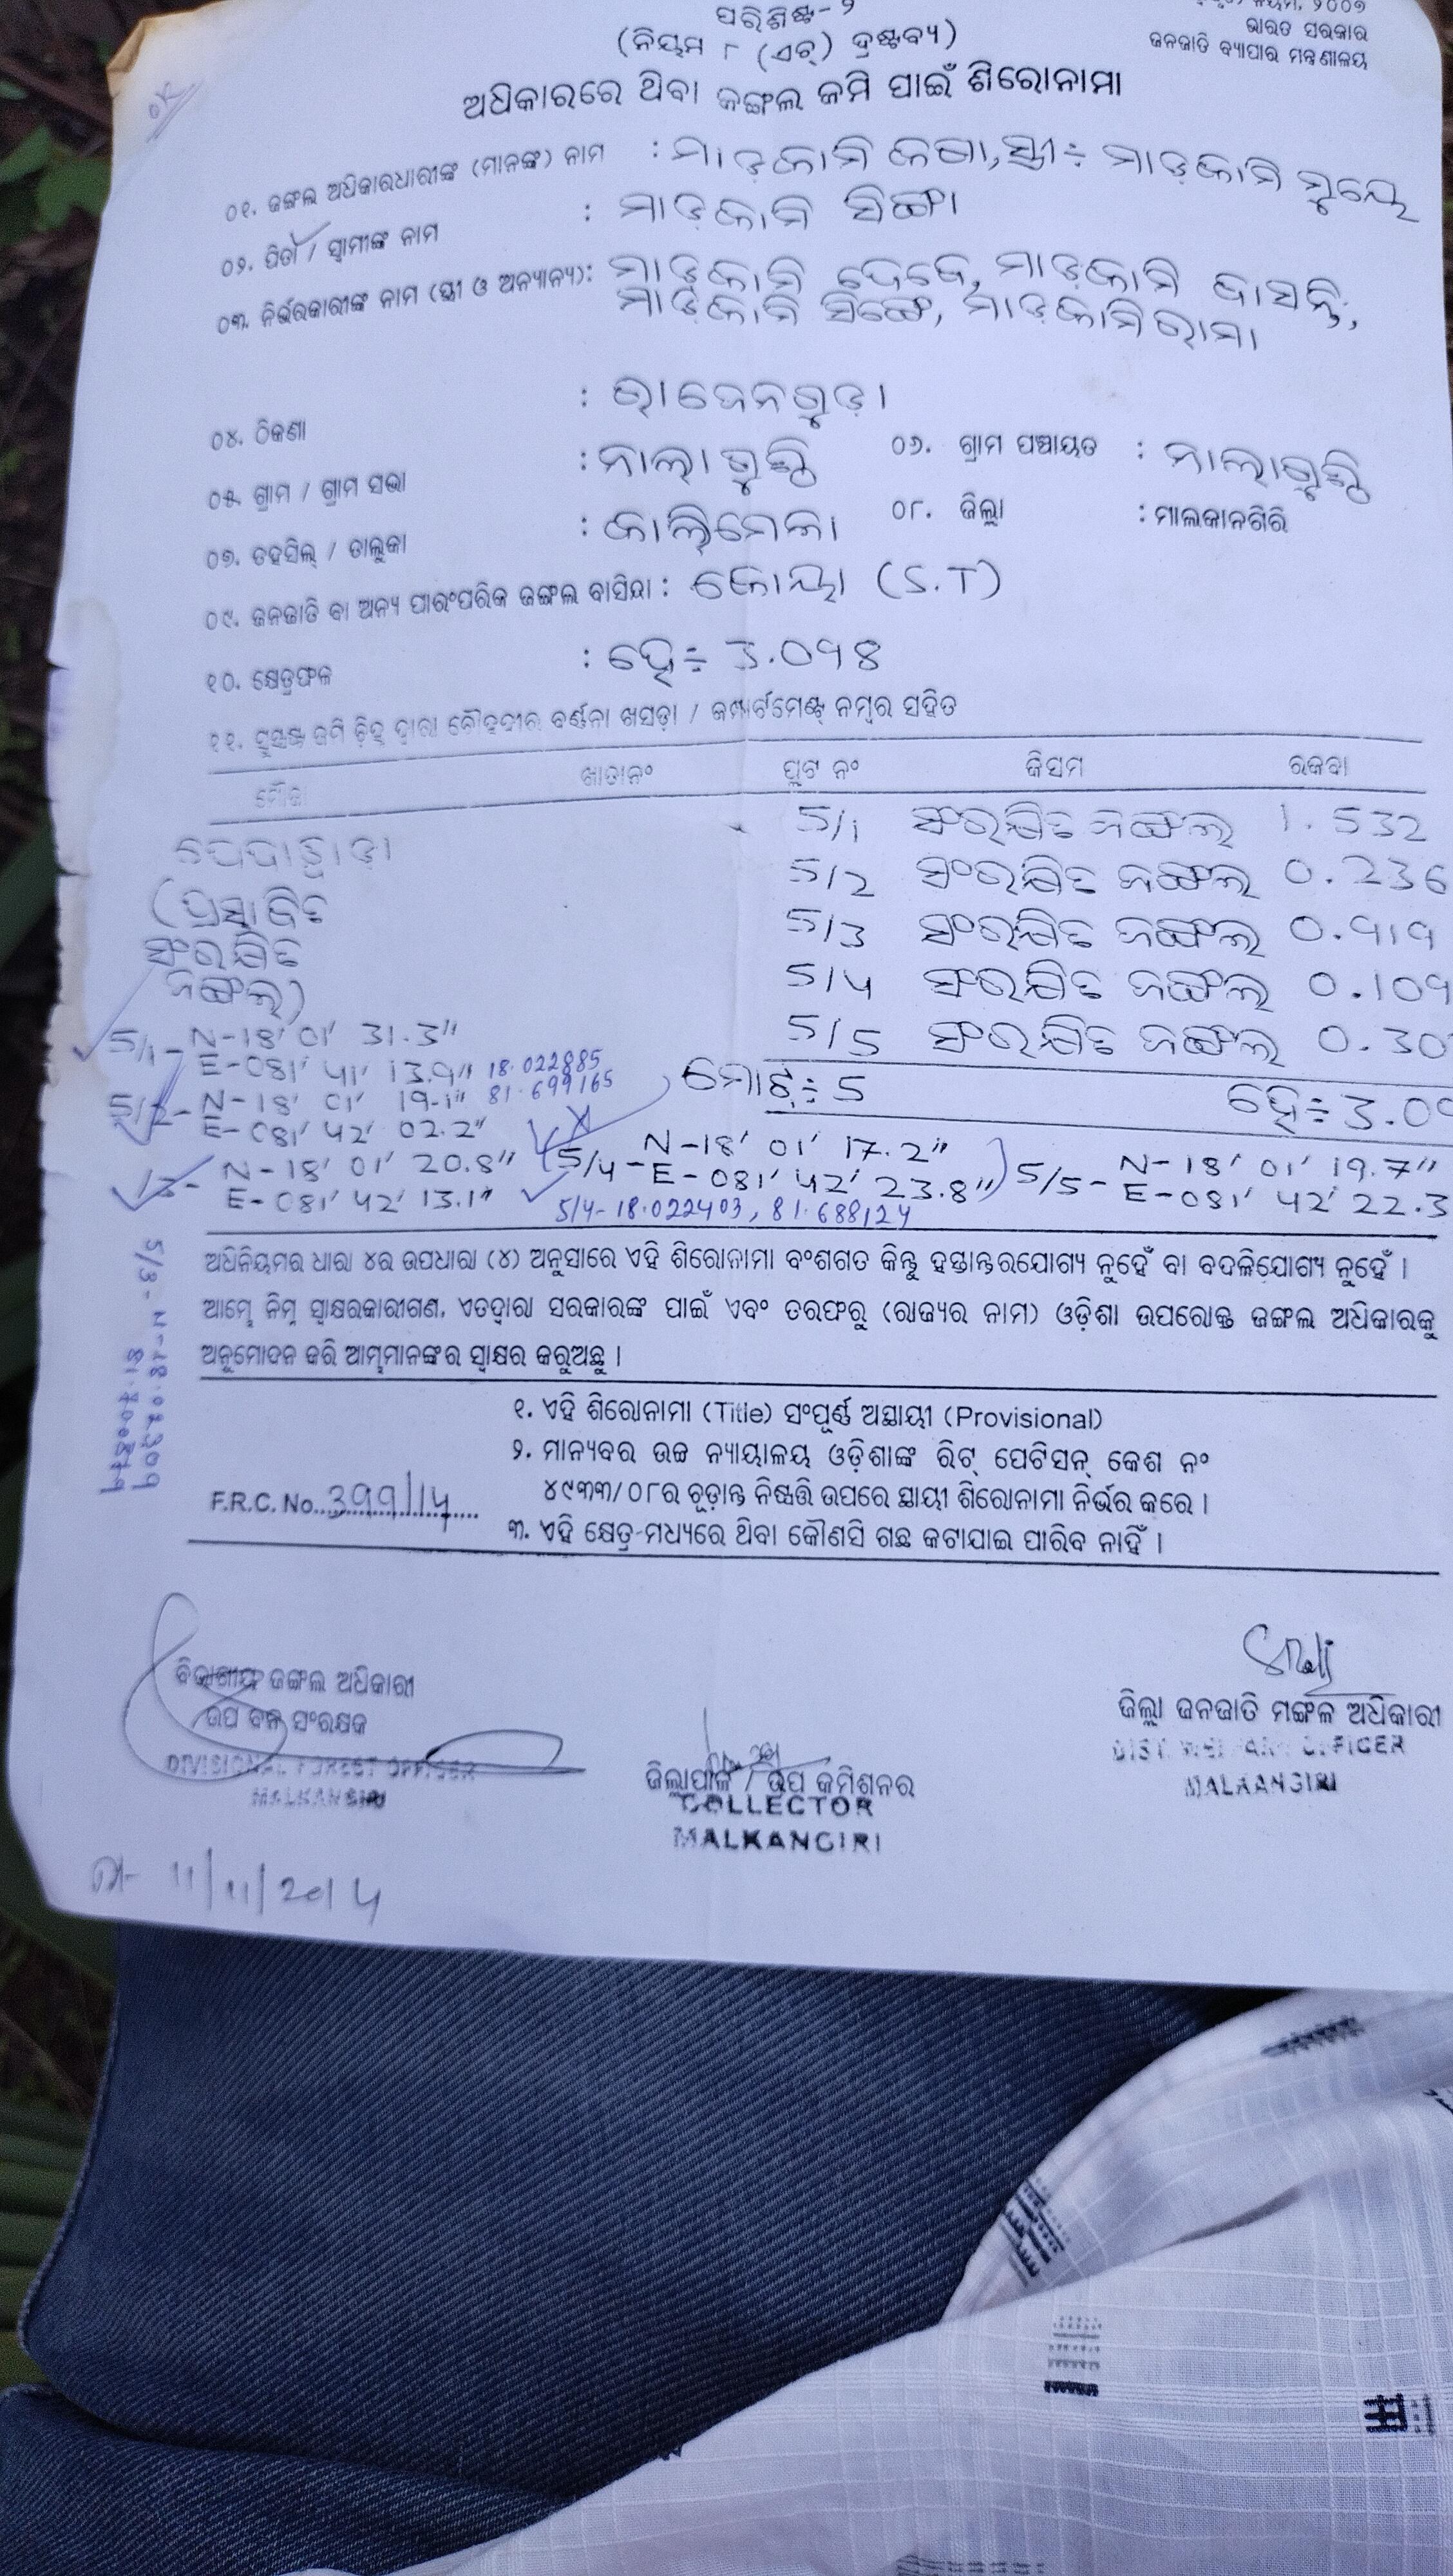 ପରିଶିଷ୍ଟ-୨
(ନିୟମ ୮ (ଏଚ୍) ଦ୍ରଷ୍ଟବ୍ୟ)
ନିୟମ, ୨୦୦୭
ଭାରତ ସରକାର
ଜନଜାତି ବ୍ୟାପାର ମନ୍ତ୍ରଣାଳୟ
ଅଧିକାରରେ ଥିବା ଜଙ୍ଗଲ ଜମି ପାଇଁ ଶିରୋନାମା
୦୧. ଜଙ୍ଗଲ ଅଧିକାରଧାରୀଙ୍କ (ମାନଙ୍କ) ନାମ : ମାଡ଼କାମି ଜଗା, ସ୍ତ୍ରୀ÷ ମାଡ଼କାମି ମୁୟେ
୦୨. ପିତା / ସ୍ୱାମୀଙ୍କ ନାମ : ମାଡ଼କାମି ସିଙ୍ଗା
୦୩. ନିର୍ଭରକାରୀଙ୍କ ନାମ (ସ୍ତ୍ରୀ ଓ ଅନ୍ୟାନ୍ୟ): ମାଡ଼କାମି ଦେବେ, ମାଡ଼କାମି ବାସନ୍ତି,
ମାଡ଼କାମି ସିଙ୍ଗେ, ମାଡ଼କାମି ରାମା
୦୪. ଠିକଣା : ରାଜେନଗୁଡ଼ା
୦୫. ଗ୍ରାମ / ଗ୍ରାମ ସଭା : ନାଲାଗୁଣ୍ଠି ୦୬. ଗ୍ରାମ ପଞ୍ଚାୟତ : ନାଲାଗୁଣ୍ଠି
୦୭. ତହସିଲ୍ / ତାଲୁକା : କାଲିମେଳା ୦୮. ଜିଲ୍ଲା : ମାଲକାନଗିରି
୦୯. ଜନଜାତି ବା ଅନ୍ୟ ପାରଂପରିକ ଜଙ୍ଗଲ ବାସିନ୍ଦା : କୋୟା (S.T)
୧୦. କ୍ଷେତ୍ରଫଳ : ହେ÷ 3.098
୧୧. ସୁସ୍ପଷ୍ଟ ଜମି ଚିହ୍ନ ଦ୍ୱାରା ଚୌହଦୀର ବର୍ଣ୍ଣନା ଖସଡ଼ା / କମ୍ପାର୍ଟମେଣ୍ଟ୍ ନମ୍ବର ସହିତ
ମୌଜା ଖାତାନଂ ପ୍ଲଟ ନଂ କିସମ ରକବା
5/1 ସଂରକ୍ଷିତ ଜଙ୍ଗଲ 1.532
5/2 ସଂରକ୍ଷିତ ଜଙ୍ଗଲ 0.236
(ପ୍ରସ୍ତାବିତ
5/3 ସଂରକ୍ଷିତ ଜଙ୍ଗଲ 0.919
ସଂରକ୍ଷିତ
5/4 ସଂରକ୍ଷିତ ଜଙ୍ଗଲ 0.109
ଜଙ୍ଗଲ)
5/5 ସଂରକ୍ଷିତ ଜଙ୍ଗଲ 0.30
ମୋଟ÷ 5 ହେ÷ 3.09
5/1- N-18' 01' 31.3"
E-081' 41' 13.9" 18.022885
81.699165
5/2- N-18' 01' 19.1"
E-081' 42' 02.2"
/3- N-18' 01' 20.8"
E-081' 42' 13.1"
(5/4- N-18' 01' 17.2"
E-081' 42' 23.8")
5/5- N-18' 01' 19.7"
E-081' 42' 22.3
5/4-18.022403, 81.688124
ଅଧିନିୟମର ଧାରା ୪ର ଉପଧାରା (୪) ଅନୁସାରେ ଏହି ଶିରୋନାମା ବଂଶଗତ କିନ୍ତୁ ହସ୍ତାନ୍ତରଯୋଗ୍ୟ ନୁହେଁ ବା ବଦଳିଯୋଗ୍ୟ ନୁହେଁ ।
ଆମ୍ଭେ ନିମ୍ନ ସ୍ୱାକ୍ଷରକାରୀଗଣ, ଏତଦ୍ୱାରା ସରକାରଙ୍କ ପାଇଁ ଏବଂ ତରଫରୁ (ରାଜ୍ୟର ନାମ) ଓଡ଼ିଶା ଉପରୋକ୍ତ ଜଙ୍ଗଲ ଅଧିକାରକୁ
ଅନୁମୋଦନ କରି ଆମ୍ଭମାନଙ୍କର ସ୍ୱାକ୍ଷର କରୁଅଛୁ ।
୧. ଏହି ଶିରୋନାମା (Title) ସଂପୂର୍ଣ୍ଣ ଅସ୍ଥାୟୀ (Provisional)
୨. ମାନ୍ୟବର ଉଚ୍ଚ ନ୍ୟାୟାଳୟ ଓଡ଼ିଶାଙ୍କ ରିଟ୍ ପେଟିସନ୍ କେଶ ନଂ
୪୯୩୩/୦୮ର ଚୂଡ଼ାନ୍ତ ନିଷ୍ପତ୍ତି ଉପରେ ସ୍ଥାୟୀ ଶିରୋନାମା ନିର୍ଭର କରେ ।
F.R.C. No. 399/14
୩. ଏହି କ୍ଷେତ୍ର ମଧ୍ୟରେ ଥିବା କୌଣସି ଗଛ କଟାଯାଇ ପାରିବ ନାହିଁ ।
ବିଭାଗୀୟ ଜଙ୍ଗଲ ଅଧିକାରୀ
ଉପ ବନ ସଂରକ୍ଷକ
DIVISIONAL FOREST OFFICER
MALKANGIRI
ଜିଲ୍ଲାପାଳ / ଉପ କମିଶନର
COLLECTOR
MALKANGIRI
ଜିଲ୍ଲା ଜନଜାତି ମଙ୍ଗଳ ଅଧିକାରୀ
DIST. WELFARE OFFICER
MALKANGIRI
ତା- 11/11/2014